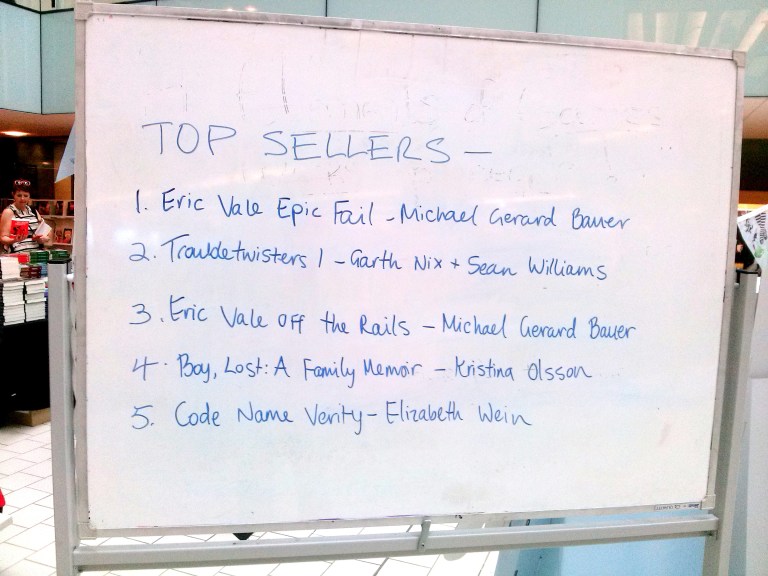 TOP SELLERS —
1. Eric Vale Epic Fail - Michael Gerard Bauer
2. Troubletwisters 1 - Garth Nix + Sean Williams
3. Eric Vale Off the Rails - Michael Gerard Bauer
4. Boy, Lost: A Family Memoir - Kristina Olsson
5. Code Name Verity - Elizabeth Wein